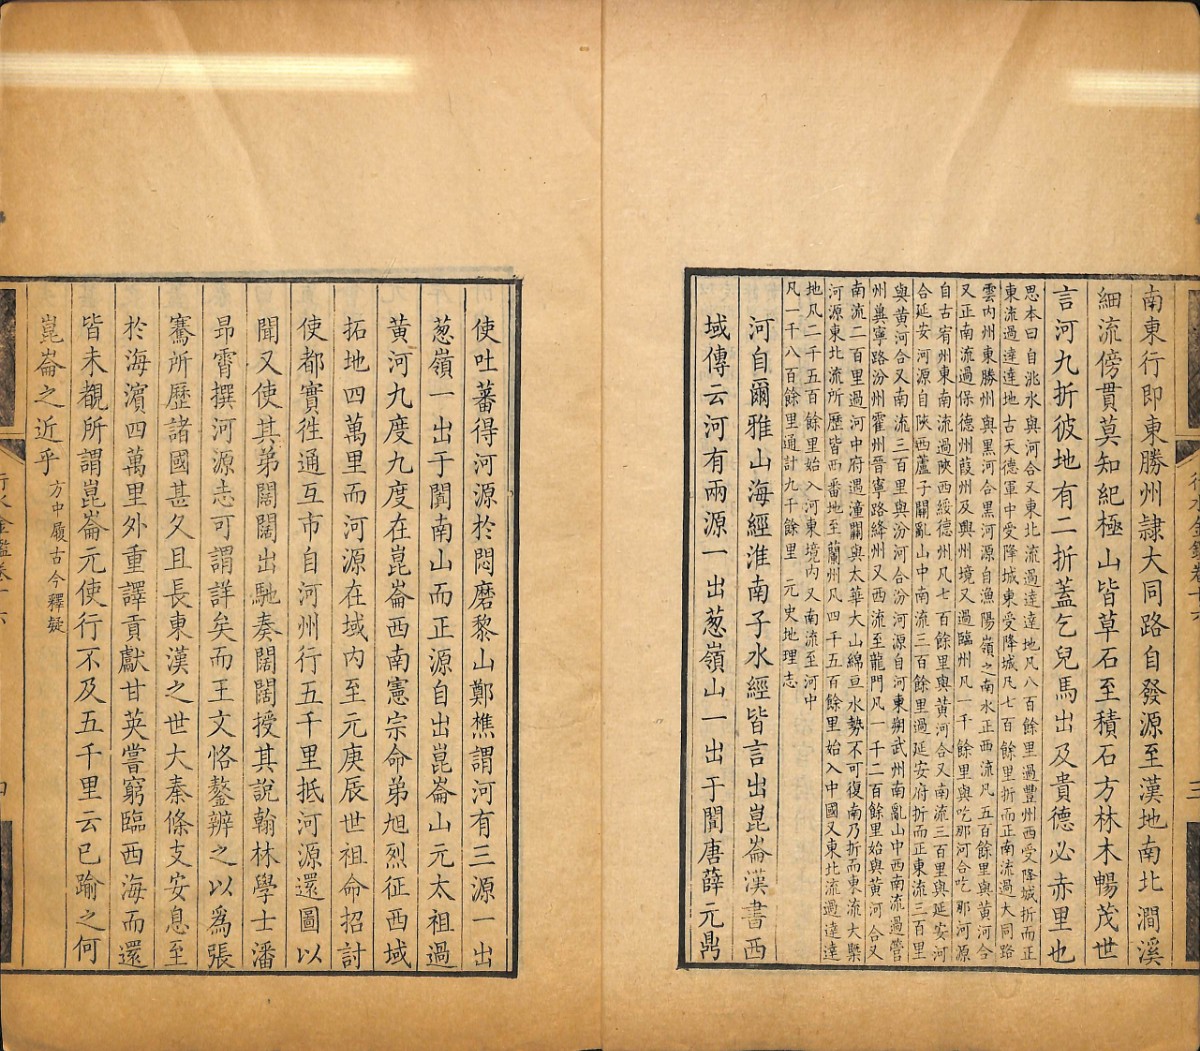 南東行即東勝州隷大同路自發源至漢地南北澗溪
細流傍貫莫知紀極山皆草石至積石方林木暢茂世
言河九折彼地有二折蓋乞兒馬出及貴德必赤里也
思本曰自洮水與河合又東北流過達達地凡八百餘里過豐州西受降城折而正
東流過達達地古天德軍中受降城東受降城凡七百餘里折而正南流過大同路
雲內州東勝州與黑河合黑河源自漁陽嶺之南水正西流凡五百餘里與黃河合
又正南流過保德州葭州及興州境又過臨州凡一千餘里與吃那河合吃那河源
自古宥州東南流過陜西綏德州凡七百餘里與黃河合又南流三百里與延安河
合延安河源自陜西蘆子關亂山中南流三百餘里過延安府折而正東流三百里
與黃河合又南流三百里與汾河合汾河源自河東朔武州南亂山中西南流過管
州冀寧路汾州霍州晉寧路絳州又西流至龍門凡一千二百餘里始與黃河合又
南流二百里過河中府遇潼關與太華大山綿亘水勢不可復南乃折而東流大槩
河源東北流所歷皆西番地至蘭州凡四千五百餘里始入中國又東北流過達達
地凡二千五百餘里始入河東境內又南流至河中
凡一千八百餘里通計九千餘里 元史地理志
河自爾雅山海經淮南子水經皆言出崑崙漢書西
域傳云河有兩源一出葱嶺山一出于闐唐薛元鼎
使吐蕃得河源於悶磨黎山鄭樵謂河有三源一出
葱嶺一出于闐南山而正源自出崑崙山元太祖過
黃河九度九度在崑崙西南憲宗命弟旭烈征西域
拓地四萬里而河源在域內至元庚辰世祖命招討
使都實徃通互市自河州行五千里抵河源還圖以
聞又使其弟闊闊出馳奏闊闊授其說翰林學士潘
昂霄撰河源志可謂詳矣而王文恪鏊辨之以為張
騫所歷諸國甚久且長東漢之世大秦條支安息至
於海濵四萬里外重譯貢獻甘英嘗窮臨西海而還
皆未覩所謂崑崙元使行不及五千里云已踰之何
崑崙之近乎 方中履古今釋疑
行水金鑑卷十六
三
四